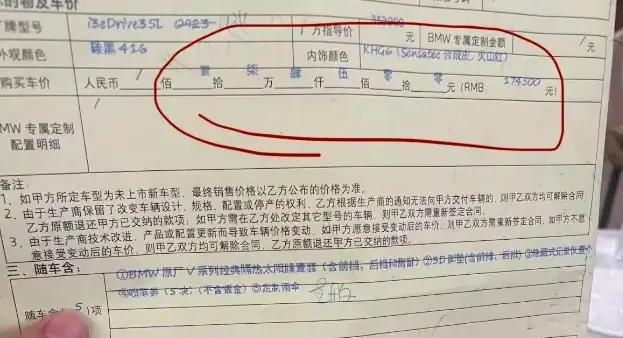 的物及车价
牌型号 i3eDrive35L 2023 厂方指导价 353900 元 BMW 专属定制金额 / 元
外观颜色 碳黑 416 内饰颜色 KHG6 (Sensatec 合成皮, 火山红)
购买车价 人民币 / 佰 壹 拾 柒 万 肆 仟 伍 佰 零 拾 零 元 (RMB 174500 元)
MW 专属定制
配置明细
备注:
1、如甲方所定车型为未上市新车型,最终销售价格以乙方公布的价格为准。
2、由于生产商保留了改变车辆设计、规格、配置或停产的权利,乙方根据生产商的通知无法向甲方交付车辆的,则甲乙双方均可解除合同,
乙方原额退还甲方已交纳的款项;如甲方需在乙处改定其它型号的车辆,则甲乙双方需重新签定合同。
3、由于生产商技术改进、产品或配置更新而导致车辆价格变动,如甲方愿意接受变动后的车价,则甲乙双方需重新签定合同,如甲方不愿
意接受变动后的车价,则甲乙双方均可解除合同,乙方原额退还甲方已交纳的款项。
三、随车含:
①BMW 原厂 V 系列经典隔热太阳膜壹套(含前档,后档和侧窗)②3D脚垫(含前排,后排)③隐藏式记录仪壹个
④喷漆券(5次)(不含钣金)⑤定制雨伞
随车含 5 )项